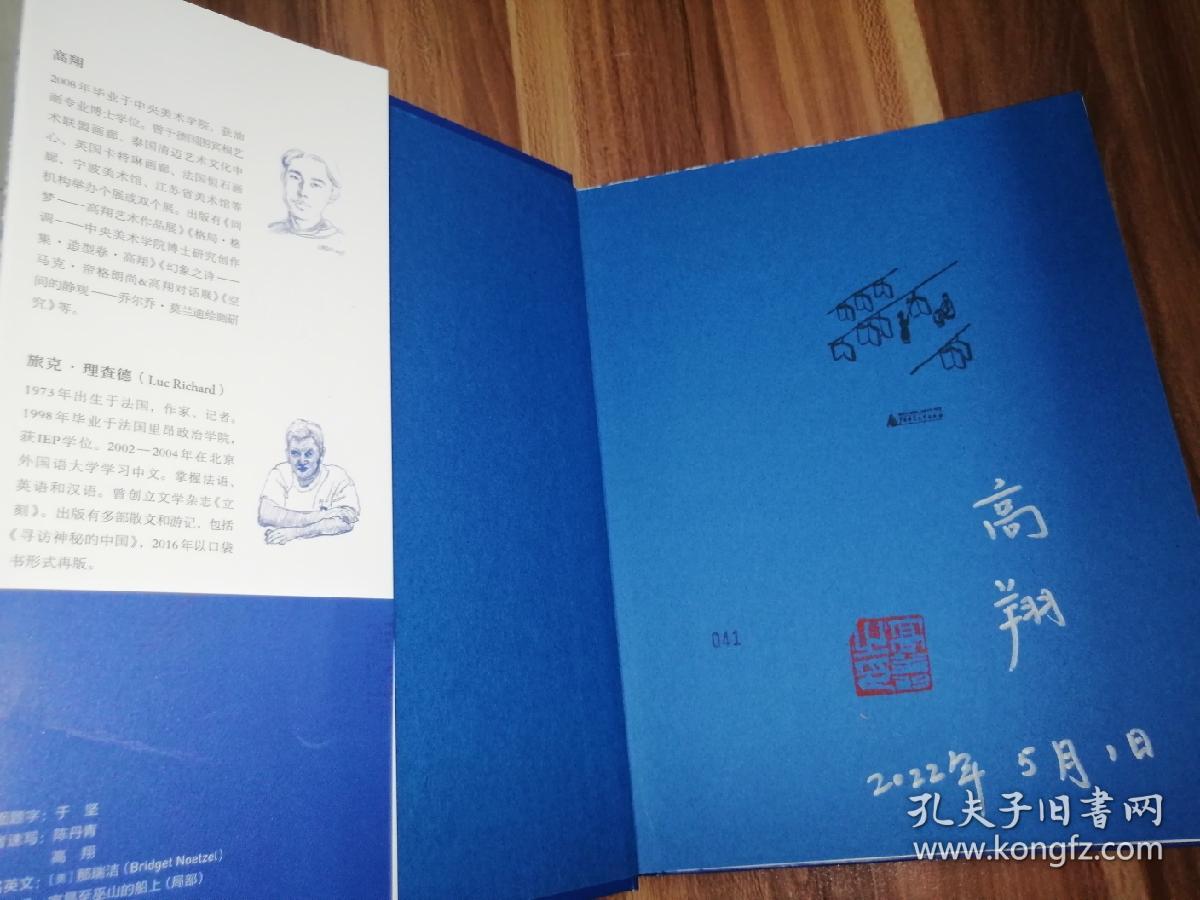 高翔
2008年毕业于中央美术学院，获油
画专业博士学位。曾于德国思宾根艺
术联盟画廊、泰国清迈艺术文化中
心、英国卡特琳画廊、法国恒石画
廊、宁波美术馆、江苏省美术馆等
机构举办个展或双个展。出版有《同
梦——高翔艺术作品展》《格局·格
调——中央美术学院博士研究创作
集·造型卷·高翔》《幻象之诗——
马克·帝格朗尚&高翔对话展》《空
间的静观——乔尔乔·莫兰迪绘画研
究》等。
旅克·理查德（Luc Richard）
1973年出生于法国，作家、记者。
1998年毕业于法国里昂政治学院，
获IEP学位。2002—2004年在北京
外国语大学学习中文。掌握法语、
英语和汉语。曾创立文学杂志《立
刻》。出版有多部散文和游记，包括
《寻访神秘的中国》，2016年以口袋
书形式再版。
面题字：于 坚
者速写：陈丹青
高 翔
名英文：［美］那瑞洁（Bridget Noetzel）
宜昌至巫山的船上（局部）
041
高
翔
2022年5月1日
孔夫子旧书网
www.kongfz.com